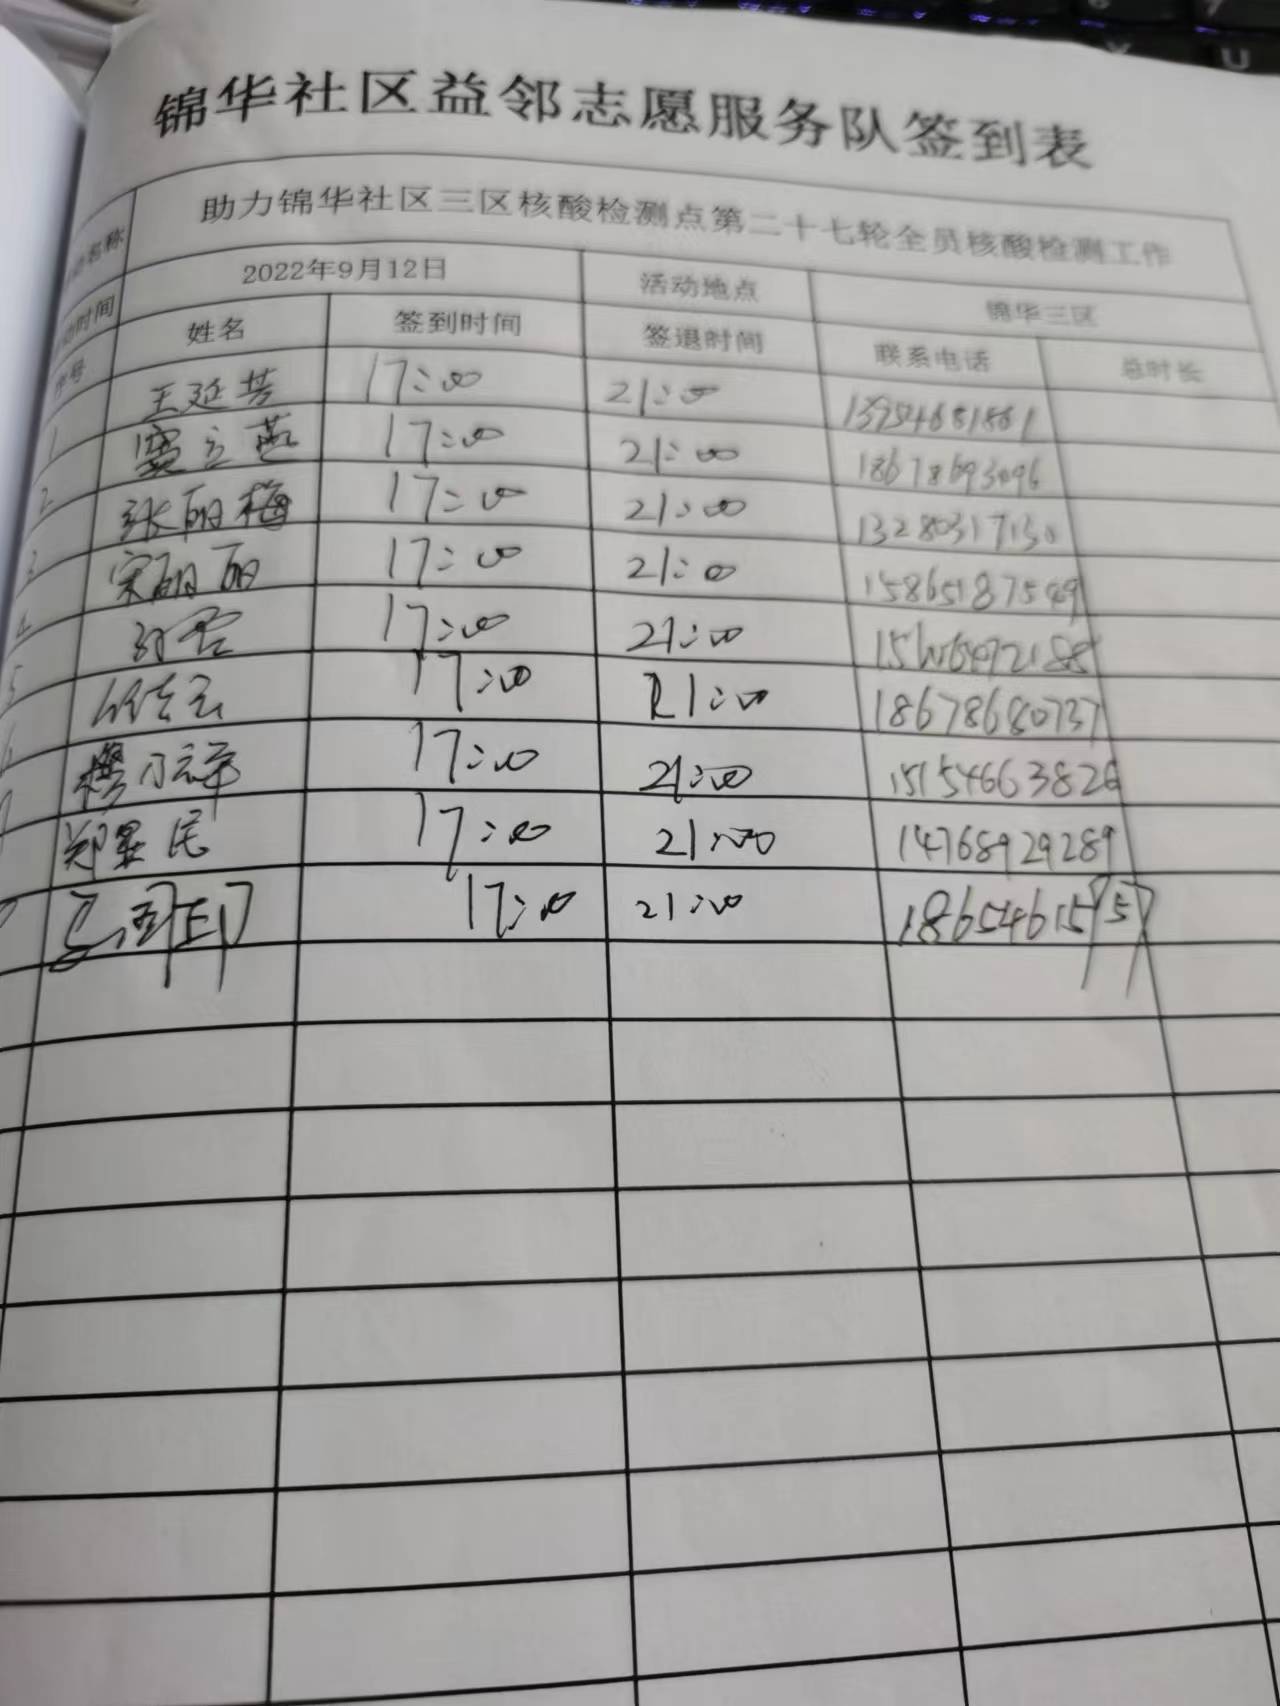 锦华社区益邻志愿服务队签到表
名称 助力锦华社区三区核酸检测点第二十七轮全员核酸检测工作
时间 2022年9月12日 活动地点 锦华三区
序号 姓名 签到时间 签退时间 联系电话 总时长
1 王延芸 17:00 21:00 13954681861
2 窦立燕 17:00 21:00 18678693096
3 张丽梅 17:00 21:00 13280317130
4 宋丽丽 17:00 21:00 15865187549
5 17:00 21:00
17:00 21:00 18678680737
17:00 21:00 15154663826
郑显民 17:00 21:00 14768929289
17:00 21:00